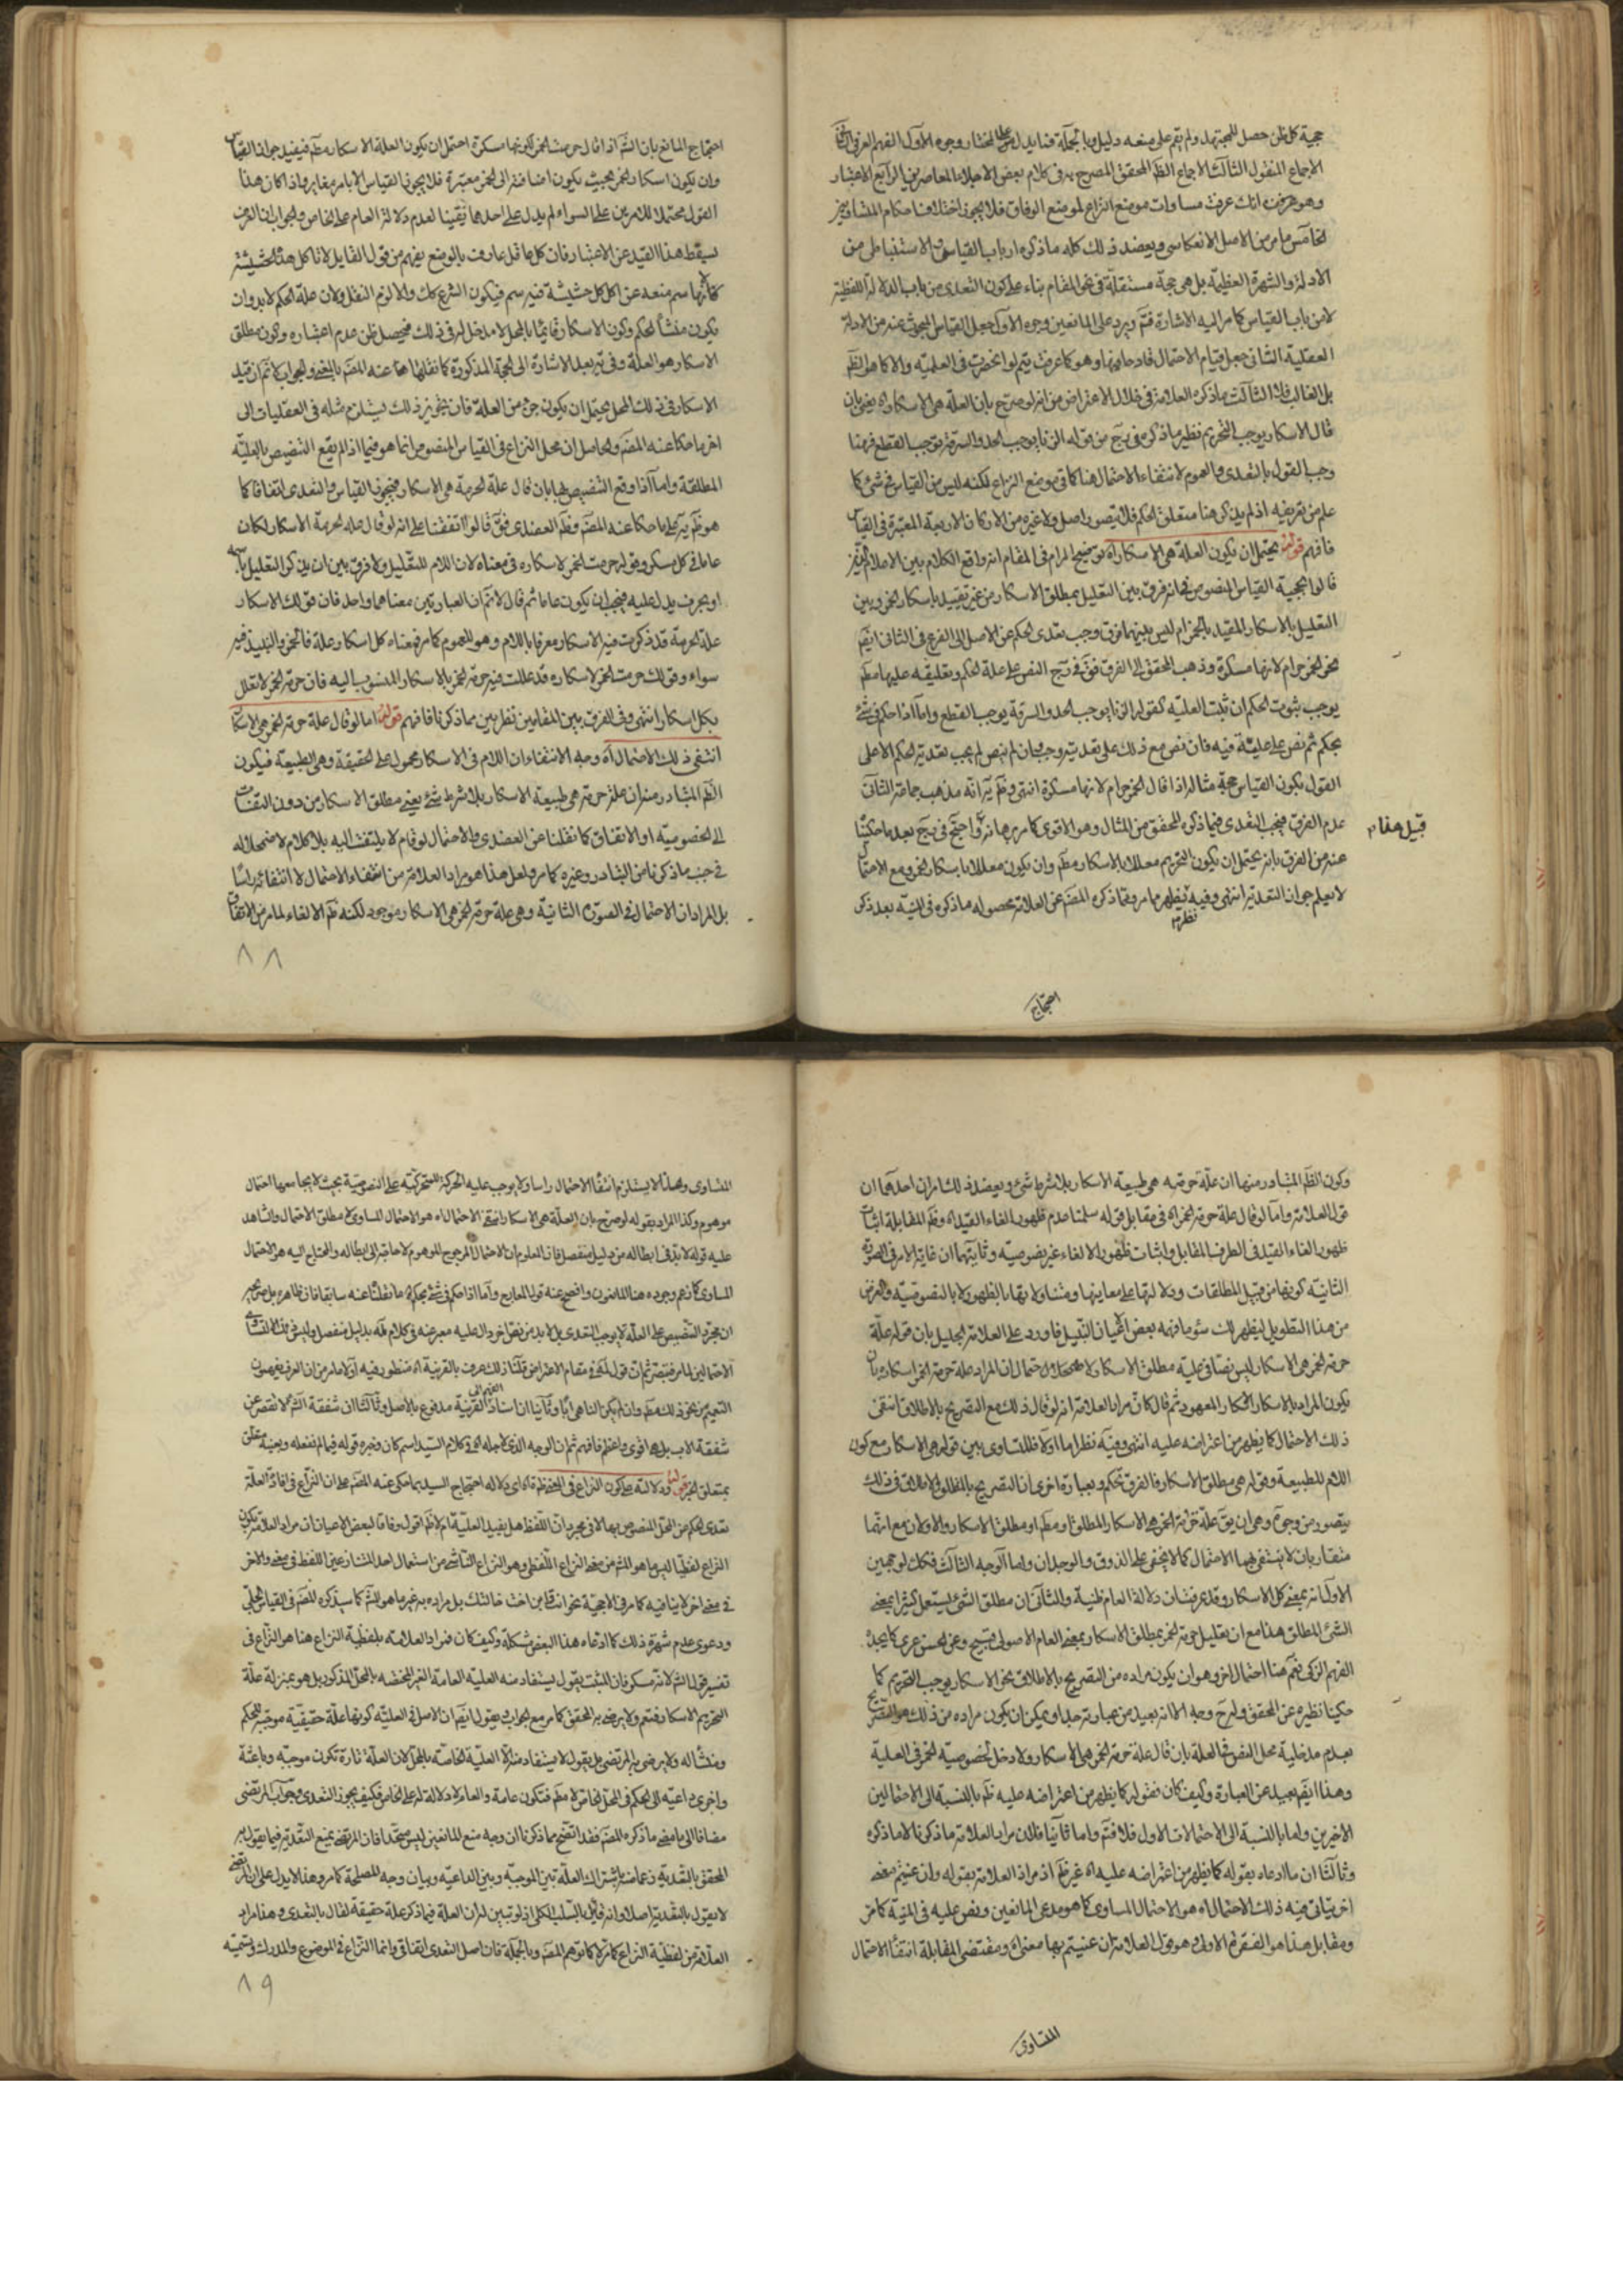 حجية كل ظن حصل للمجتهد ولم يقم على منعه دليل وبالجملة فما يدل على المختار وجوه الأول الفهم العرفي الثاني
الاجماع المنقول الثالث الاجماع الظ المحقق المصرح به في كلام بعض الاجلاء المعاصرين الرابع الاعتبار
وهو انك عرفت مساوات موضع النزاع لموضع الوفاق فلا يجوز اختلافا حكام المتساويين
الخامس ما مر من الاصل الانعكاسى ويعضد ذلك كله ما ذكره ارباب القياس الاستنباطى من
الادلة والشهرة العظيمة بل هي حجة مستقلة في المقام بناء على كون التعدى من باب الدلالة اللفظية
لا من باب القياس كما مر اليه الاشارة فتم ويرد على المانعين وجوه الاول جعل القياس المبحوث عنه من الادلة
العقلية الثانى جعل قيام الاحتمال قادحا فيها وهو كما عرفت يتم لو انحصرت فى العلمية والا كما هو الظ
بل الغالب فلا الثالث ما ذكره العلامة فى خلال الاعتراض من انه لو صرح بان العلة هى الاسكار اه يعنى بان
قال الاسكار يوجب التحريم نظير ما ذكره فى رج من قوله الزنا يوجب الحد والسرقة يوجب القطع فهنا
وجب القول بالتعدى والعموم لانتفاء الاحتمال هنا كما فى موضع النزاع لكنه ليس من القياس فى شئ كما
علم من تعريفه اذ لم يذكر هنا متعلق الحكم فلا يتصور اصل ولا غيره من الاركان الاربعة المعتبرة فى القياس
فافهم قوله يحتمل ان يكون العلة هى الاسكار اه توضيح المرام فى المقام انه واقع الكلام بين الاعلام
قالوا بحجية القياس المنصوص فى انه فرق بين التعليل بمطلق الاسكار من غير تقييد باسكار الخمر وبين
التعليل بالاسكار المقيد بالخمر ام ليس بينهما فرق وجب تعدى الحكم عن الاصل الى الفرع فى الثانى ايضم
نحو الخمر حرام لانها مسكرة وذهب المحقق الى الفرق فقال فى رج النص على علة الحكم وتعليقه عليها مطم
يوجب ثبوت الحكم ان ثبت العلية كقوله الزنا يوجب الحد والسرقة يوجب القطع واما اذا حكم فى شئ
بحكم ثم نص على علية فيه فان نص مع ذلك على تعديته وجب وان لم ينص لم يجب تعدية الحكم الا على
القول بكون القياس حجة مثاله اذا قال الخمر حرام لانها مسكرة انتهى وظ يه انه مذهب جماعة الثانى
عدم الفرق فيجب التعدى فيما ذكره المحقق من المثال وهو الاقوى كما مر برهانه واحتج فى رج بعد ما حكينا
عنه من الفرق بانه يحتمل ان يكون التحريم معللا بالاسكار مطم وان يكون معللا باسكار الخمر ومع الاحتمال
لا يعلم جواز التعدية انتهى وفيه نظر يظهر مما مر وفيما ذكره المصم عن العلامة محصوله ما ذكره فى المنية بعد ذكر
احتجاج
احتجاج المانع بان الشم اذا قال حرمت الخمر لكونها مسكرة احتمل ان يكون العلة الاسكار مطم فيفيد جواز القياس
وان يكون اسكار الخمر بحيث يكون اضافته الى الخمر معتبرة فلا يجوز القياس الا بامر مغاير واذا كان هذا
القول محتملا للامرين على السواء لم يدل على احدهما تيقينا لعدم دلالة العام على الخاص والجواب ان العرف
يسقط هذا القيد عن الاعتبار فان كل عاقل عارف بالوضع يفهم من قول القايل لا تاكل هذه الحشيشة
فانها سم منعه عن اكل كل حشيشة فيه سم فيكون الشرع كك والا لزم النقل ولان علة الحكم لا بد وان
يكون منشأ الحكم وكون الاسكار قائما بالمحل لا مدخل له فى ذلك فيحصل ظن عدم اعتباره وكون مطلق
الاسكار هو العلة وفى يه بعد الاشارة الى الحجة المذكورة كما نقلها هنا عنه المصم بالمعنى والجواب لا نم ان قيد
الاسكار فى ذلك المحل يحتمل ان يكون جزء من العلة فان تجويز ذلك يستلزم مثله فى العقليات الى
اخر ما حكا عنه المصم والحاصل ان محل النزاع فى القياس المنصوص انما هو فيما اذا لم يقع التنصيص بالعلية
المطلقة واما اذا وقع التنصيص بها بان قال علة الحرمة هى الاسكار فيجوز القياس والتعدى اتفاقا كما
هو ظ يه على ما حكا عنه المصم وظ العضدى فق قالوا اتفقنا على انه لو قال علة الحرمة الاسكار لكان
عاما فى كل مسكر وقوله حرمت الخمر لاسكاره فى معناه لان اللام للتعليل ولا فرق بين ان يذكر التعليل باسمه
او بحرف يدل عليه فيجب ان يكون عاما ثم قال لا نم ان العبارتين معناهما واحد فان قولك الاسكار
علة الحرمة قد ذكرت فيه الاسكار معرفا باللام وهو للعموم كما مر فمعناه كل اسكار علة فالخمر والنبيذ فيه
سواء وقولك حرمت الخمر لاسكاره قد عللت فيه حرمة الخمر بالاسكار المنسوب اليه فان حرمة الخمر لا تعلل
بكل اسكار انتهى وفى الفرق بين المقامين نظر يبين مما ذكرنا فافهم قوله اما لو قال علة حرمة الخمر هى الاسكار
انتفى ذلك الاحتمال اه وجه الانتفاء ان اللام فى الاسكار محمول على الحقيقة وهى الطبيعة فيكون
الظ المتبادر منه ان علة حرمته هى طبيعة الاسكار بلا شرط شئ يعنى مطلق الاسكار من دون التفات
الى الخصوصية او الاتفاق كما نقلنا عن العضدى والاحتمال لو قام لا يلتفت اليه بلا كلام لاضمحلاله
فى جنب ما ذكرنا من التبادر وغيره كما مر ولعل هذا هو مراد العلامة من انتفاء الاحتمال لا انتفائه راسا
بل المراد ان الاحتمال فى الصورة الثانية وهى علة حرمة الخمر هى الاسكار موجود لكنه ظ الالغاء لما مر من الاتفاق
٨٨
وكون الظ المتبادر منها ان علة حرمته هى طبيعة الاسكار بلا شرط شئ ويعضد ذلك امران احدهما ان
قول العلامة واما لو قال علة حرمة الخمر اه فى مقابل قوله سلمنا عدم ظهور الغاء القيد اه وظ المقابلة اثبات
ظهور الغاء القيد فى الطرف المقابل واثبات ظهور الالغاء غير نصوصيته وثانيهما ان غاية الامر فى الصورة
الثانية كونها من قبيل المطلقات ودلالتها على معانيها ومتناولاتها بالظهور لا بالنصوصية والغرض
من هذا التطويل ليظهر لك سؤ ما فهمه بعض اعيان التبيل فاورد على العلامة الجليل بان قوله علة
حرمة الخمر هى الاسكار ليس نصا فى علية مطلق الاسكار لاحتمال ان المراد علة حرمة الخمر اسكاره بان
يكون المراد بالاسكار الاسكار المعهود ثم قال كان مراد العلامة انه لو قال ذلك مع التصريح بالاطلاق انتفى
ذلك الاحتمال كما يظهر من اعتراضه عليه انتهى وفيه نظر اما اولا فللتساوى بين قوله هى الاسكار مع كون
اللام للطبيعة وقوله هى مطلق الاسكار فالفرق تحكم وبعبارة اخرى ان التصريح بالمطلق والاطلاق فى ذلك
يتصور من وجوه وهى ان يق علة حرمة الخمر هى الاسكار المطلق او مطم او مطلق الاسكار والاولان مع انهما
متقاربان لا ينتفى بهما الاحتمال كما لا يخفى على الذوق والوجدان واما الوجه الثالث فكك لوجهين
الاول انه بمعنى كل الاسكار وقد عرفت ان دلالة العام ظنية والثانى ان مطلق الشئ يستعمل كثيرا بمعنى
الشئ المطلق هذا مع ان تعليل حرمة الخمر بمطلق الاسكار بمعنى العام الاصولى قبيح وغير حسن عرفى كما يجده
الفهم الزكى نعم هنا احتمال اخر وهو ان يكون مراده من التصريح بالاطلاق نحو الاسكار يوجب التحريم كما
حكينا نظيره عن المحقق فى رج وجه الا انه بعيد من عبارته جدا ويمكن ان يكون مراده من ذلك هو التصريح
بعدم مدخلية محل النص فى العلة بان قال علة حرمة الخمر هى الاسكار ولا دخل لخصوصية الخمر فى العلية
وهذا ايضم بعيد عن العبارة وكيف كان فقوله كما يظهر من اعتراضه عليه ظ بالنسبة الى الاحتمالين
الاخيرين واما بالنسبة الى الاحتمالات الاول فلا فتم واما ثانيا فلان مراد العلامة ما ذكرنا لا ما ذكره
وثالثا ان ما ادعاه بقوله كما يظهر من اعتراضه عليه اه غير ظ اذ مراد العلامة بقوله وان عنيتم معنى
اخر تتاتى فيه ذلك الاحتمال اه هو الاحتمال المساوى كما هو مدعى المانعين ونص عليه فى المنية كما مر
ومقابل هذا هو الفقرة الاولى وهو قول العلامة ان عنيتم بها معنى اه ومقتضى المقابلة انتفاء الاحتمال
المتساوى
المتساوى وهذا لا يستلزم انتفاء الاحتمال راسا ولا يوجب عليه الحركة المتحركية على النصوصية بحيث لا يجامعها احتمال
موهوم وكذا المراد بقوله لو صرح بان العلة هى الاسكار انتفى الاحتمال اه هو الاحتمال المساوى لا مطلق الاحتمال والشاهد
عليه قوله لا بد فى ابطاله من دليل منفصل فان المعلوم ان الاحتمال المرجوح الموهوم لا حاجة الى ابطاله والمحتاج اليه هو الاحتمال
المساوى كما زعم وجوده هنا المانعون وافصح عنه قول المعارج واما اذا حكم فى شئ بحكم اه ما نقلنا عنه سابقا فان ظاهره بل صريحه
ان مجرد التنصيص على العلة لا يوجب التعدى بل لا بد من نص اخر دال عليه معبر عنه فى كلام
الاحتمالين لما مر فتبصر ثم ان قول المصم فى مقام الاعتراض قلنا ذلك عرف بالقرينة اه منظور فيه اولا لما مر من ان العرف يفهمون
التعميم من نحو ذلك مطم وان لم يكن الناهى ابا وثانيا ان اسناد الفهم الى القرينة مدفوع بالاصل وثالثا ان شفقة الشم لا تقصر عن
شفقة الاب بل هو اقوى واعظم فافهم ثم ان الوجه الذى لاجله اتى فى كلام السيد اسم كان وخبره قوله فيما لم نفعله وبعينه متعلق
بمتعلق الخبر قوله ودلالته على كون النزاع فى المعنى ظ اه اى دلالة احتجاج السيد بما حكى عنه المصم على ان النزاع فى افادة العلة
تعدى الحكم من المحل المنصوص بها لا فى مجرد ان اللفظ هل يفيد العلية ام لا ظ اقول وفاقا لبعض الاعيان ان مراد العلامة بكون
النزاع لفظيا ليس ما هو المشهور من معنى النزاع اللفظى وهو النزاع الناشى من استعمال احد المتنازعين اللفظ فى معنى والاخر
فى معنى اخر لا ينافيه كما مر فى الاحجية نحو انت قاين اخت خالتك بل مراده به غير ما هو الشم كما سيذكره المصم فى القياس الجلى
ودعوى عدم شهرة ذلك كما ادعاه هذا البعض مشكلة وكيف كان فمراد العلامة بلفظية النزاع هنا هو النزاع فى
تفسير قول الشم لانه مسكر فان المثبت يقول يستفاد منه العلية العامة الغير المختصة بالمحل المذكور بل هو بمنزلة علة
التحريم الاسكار فتعم ولا يرضى به المحقق كما مر مع الجواب ويقول ايضم ان الاصل فى العلية كونها علة حقيقية موجبة للحكم
ومنشأ له ولا يرضى به المرتضى بل يقول لا يستفاد منه الا العلية الخاصة بالمحل لان العلة تارة تكون موجبة وباعثة
واخرى داعية الى الحكم فى المحل الخاص لا مطم فتكون عامة والعام لا دلالة له على الخاص فكيف يجوز التعدى وجواب المرتضى
مضافا الى ما مضى ما ذكره المصم فقد اتضح مما ذكرنا ان وجه منع المانعين ليس متحدا فان المرتضى يمنع التعدية فيما يقول به
المحقق بالتعدية زعما منه باشتراك العلة بين الموجبة وبين الداعية وبيان وجه المصلحة كما مر وهذا لا يدل على ان المرتضى
لا يقول بالتعدية اصلا وانه قائل بالسلب الكلى اذ لو تبين له ان العلة فيما ذكر علة حقيقة لقال بالتعدى وهذا مراد
العلامة من لفظية النزاع كما مر لا كما توهم المصم وبالجملة فان اصل التعدى اتفاقى وانما النزاع فى الموضوع والمدرك وتسميته
٨٩